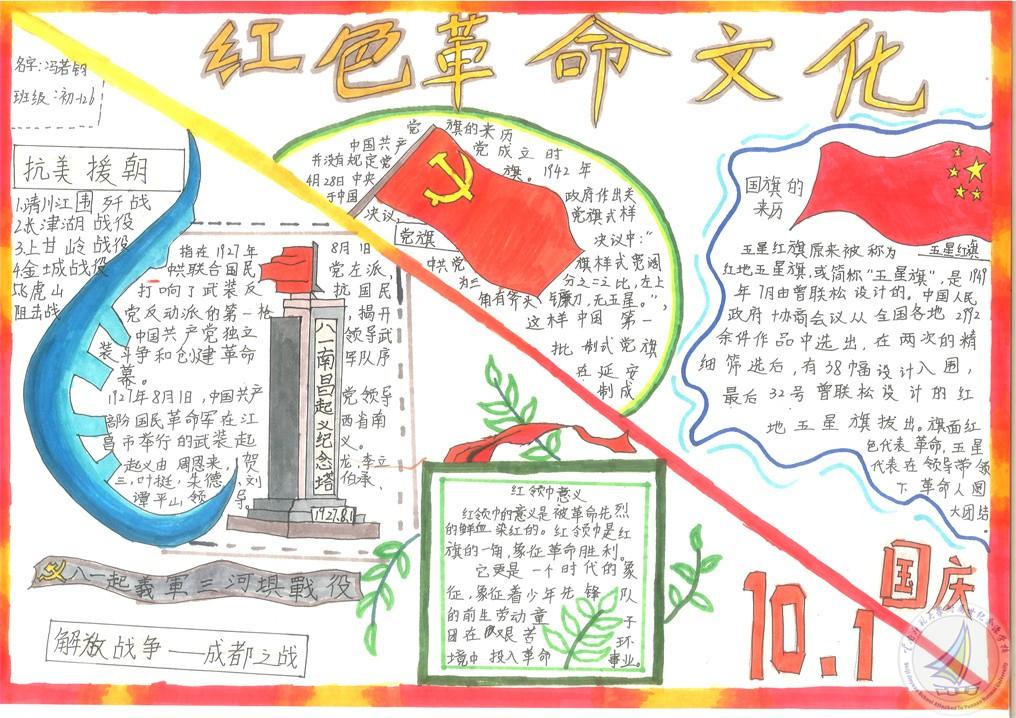 红色革命文化
名字:冯若钧
班级:初一26
抗美援朝
1.清川江围歼战
2.长津湖战役
3.上甘岭战役
4.金城战役
5.飞虎山
阻击战
指在1927年8月1日
中共联合国民党左派,
打响了武装反抗国民
党反动派的第一枪,揭开
中国共产党独立领导武
装斗争和创建革命军队序
幕。
1927年8月1日,中国共产党领导
部阶国民革命军在江西省南
昌市举行的武装起义。
起义由周恩来,贺龙,李立
三,叶挺,朱德,刘伯承、
谭平山领导。
八一南昌起义纪念塔
1927.8.1
八一起義軍三河埧戰役
解放战争——成都之战
党旗的来历
中国共产党成立时
并没有规定党旗。1942年
4月28日中央政府作出关
于中国党旗式样
决议决议中:"
党旗
中共党旗样式宽阔
为三分之二比,左上
角有斧头、镰刀,无五星。",
这样中国第一
批制式党旗
在延安
制成
国旗的
来历
五星红旗原来被称为五星红旗
红地五星旗,或简称"五星旗",是1949
年7月由曾联松设计的。中国人民
政府协商会议从全国各地2992
余件作品中选出,在两次的精
细筛选后,有38幅设计入围,
最后32号曾联松设计的红
地五星旗拔出。旗面红
色代表革命,五星
代表在领导带领
下革命人围
大团结。
红领巾意义
红领巾的意义是被革命先烈
的鲜血染红的。红领巾是红
旗的一角,象征革命胜利。
它更是一个时代的象
征,象征着少年先锋队
的前生劳动童子
团在艰苦环
境中投入革命事业。
国庆
10.1